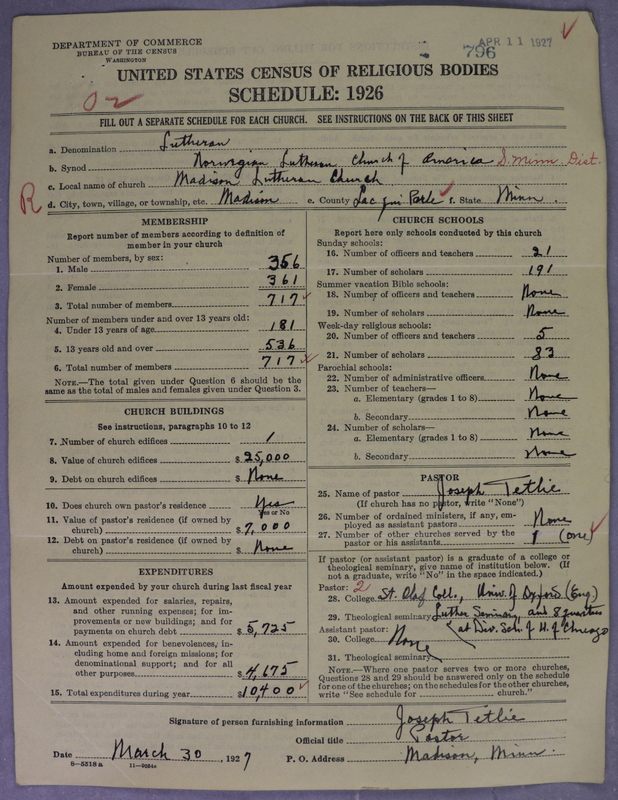 DEPARTMENT OF COMMERCE
BUREAU OF THE CENSUS
WASHINGTON
APR 11 1927
796
UNITED STATES CENSUS OF RELIGIOUS BODIES
SCHEDULE: 1926
FILL OUT A SEPARATE SCHEDULE FOR EACH CHURCH. SEE INSTRUCTIONS ON THE BACK OF THIS SHEET
a. Denomination Lutheran
b. Synod Norwegian Lutheran Church of America S. Minn. Dist.
c. Local name of church Madison Lutheran Church
R
d. City, town, village, or township, etc. Madison e. County Lac qui Parle f. State Minn.
MEMBERSHIP
Report number of members according to definition of
member in your church
Number of members, by sex:
1. Male 356
2. Female 361
3. Total number of members 717
Number of members under and over 13 years old:
4. Under 13 years of age 181
5. 13 years old and over 536
6. Total number of members 717
NOTE.—The total given under Question 6 should be
same as the total of males and females given under Question 3.
CHURCH BUILDINGS
See instructions, paragraphs 10 to 12
7. Number of church edifices 1
8. Value of church edifices $ 25,000
9. Debt on church edifices $ None
10. Does church own pastor's residence Yes
Yes or No
11. Value of pastor's residence (if owned by
church) $ 7,000
12. Debt on pastor's residence (if owned by
church) $ None
EXPENDITURES
Amount expended by your church during last fiscal year
13. Amount expended for salaries, repairs,
and other running expenses; for im-
provements or new buildings; and for
payments on church debt $ 5,725
14. Amount expended for benevolences, in-
cluding home and foreign missions; for
denominational support; and for all
other purposes $ 4,675
15. Total expenditures during year $ 10,400
CHURCH SCHOOLS
Report here only schools conducted by this church
Sunday schools:
16. Number of officers and teachers 21
17. Number of scholars 191
Summer vacation Bible schools:
18. Number of officers and teachers None
19. Number of scholars None
Week-day religious schools:
20. Number of officers and teachers 5
21. Number of scholars 83
Parochial schools:
22. Number of administrative officers None
23. Number of teachers—
a. Elementary (grades 1 to 8) None
b. Secondary None
24. Number of scholars—
a. Elementary (grades 1 to 8) None
b. Secondary None
PASTOR
25. Name of pastor Joseph Tetlie
(If church has no pastor, write "None")
26. Number of ordained ministers, if any, em-
ployed as assistant pastors None
27. Number of other churches served by the
pastor or his assistants 1 (one)
If pastor (or assistant pastor) is a graduate of a college or
theological seminary, give name of institution below. (If
not a graduate, write "No" in the space indicated.)
Pastor: 2
28. College St. Olaf Coll., Univ. of Oxford (Eng.)
29. Theological seminary Luther Seminary and 8 quarters
at Div. Sch. of U. of Chicago
Assistant pastor:
30. College None
31. Theological seminary
NOTE.—Where one pastor serves two or more churches,
Questions 28 and 29 should be answered only on the schedule
for one of the churches; on the schedules for the other churches,
write "See schedule for church."
Signature of person furnishing information Joseph Tetlie
Official title Pastor
Date March 30, 1927 P. O. Address Madison, Minn.